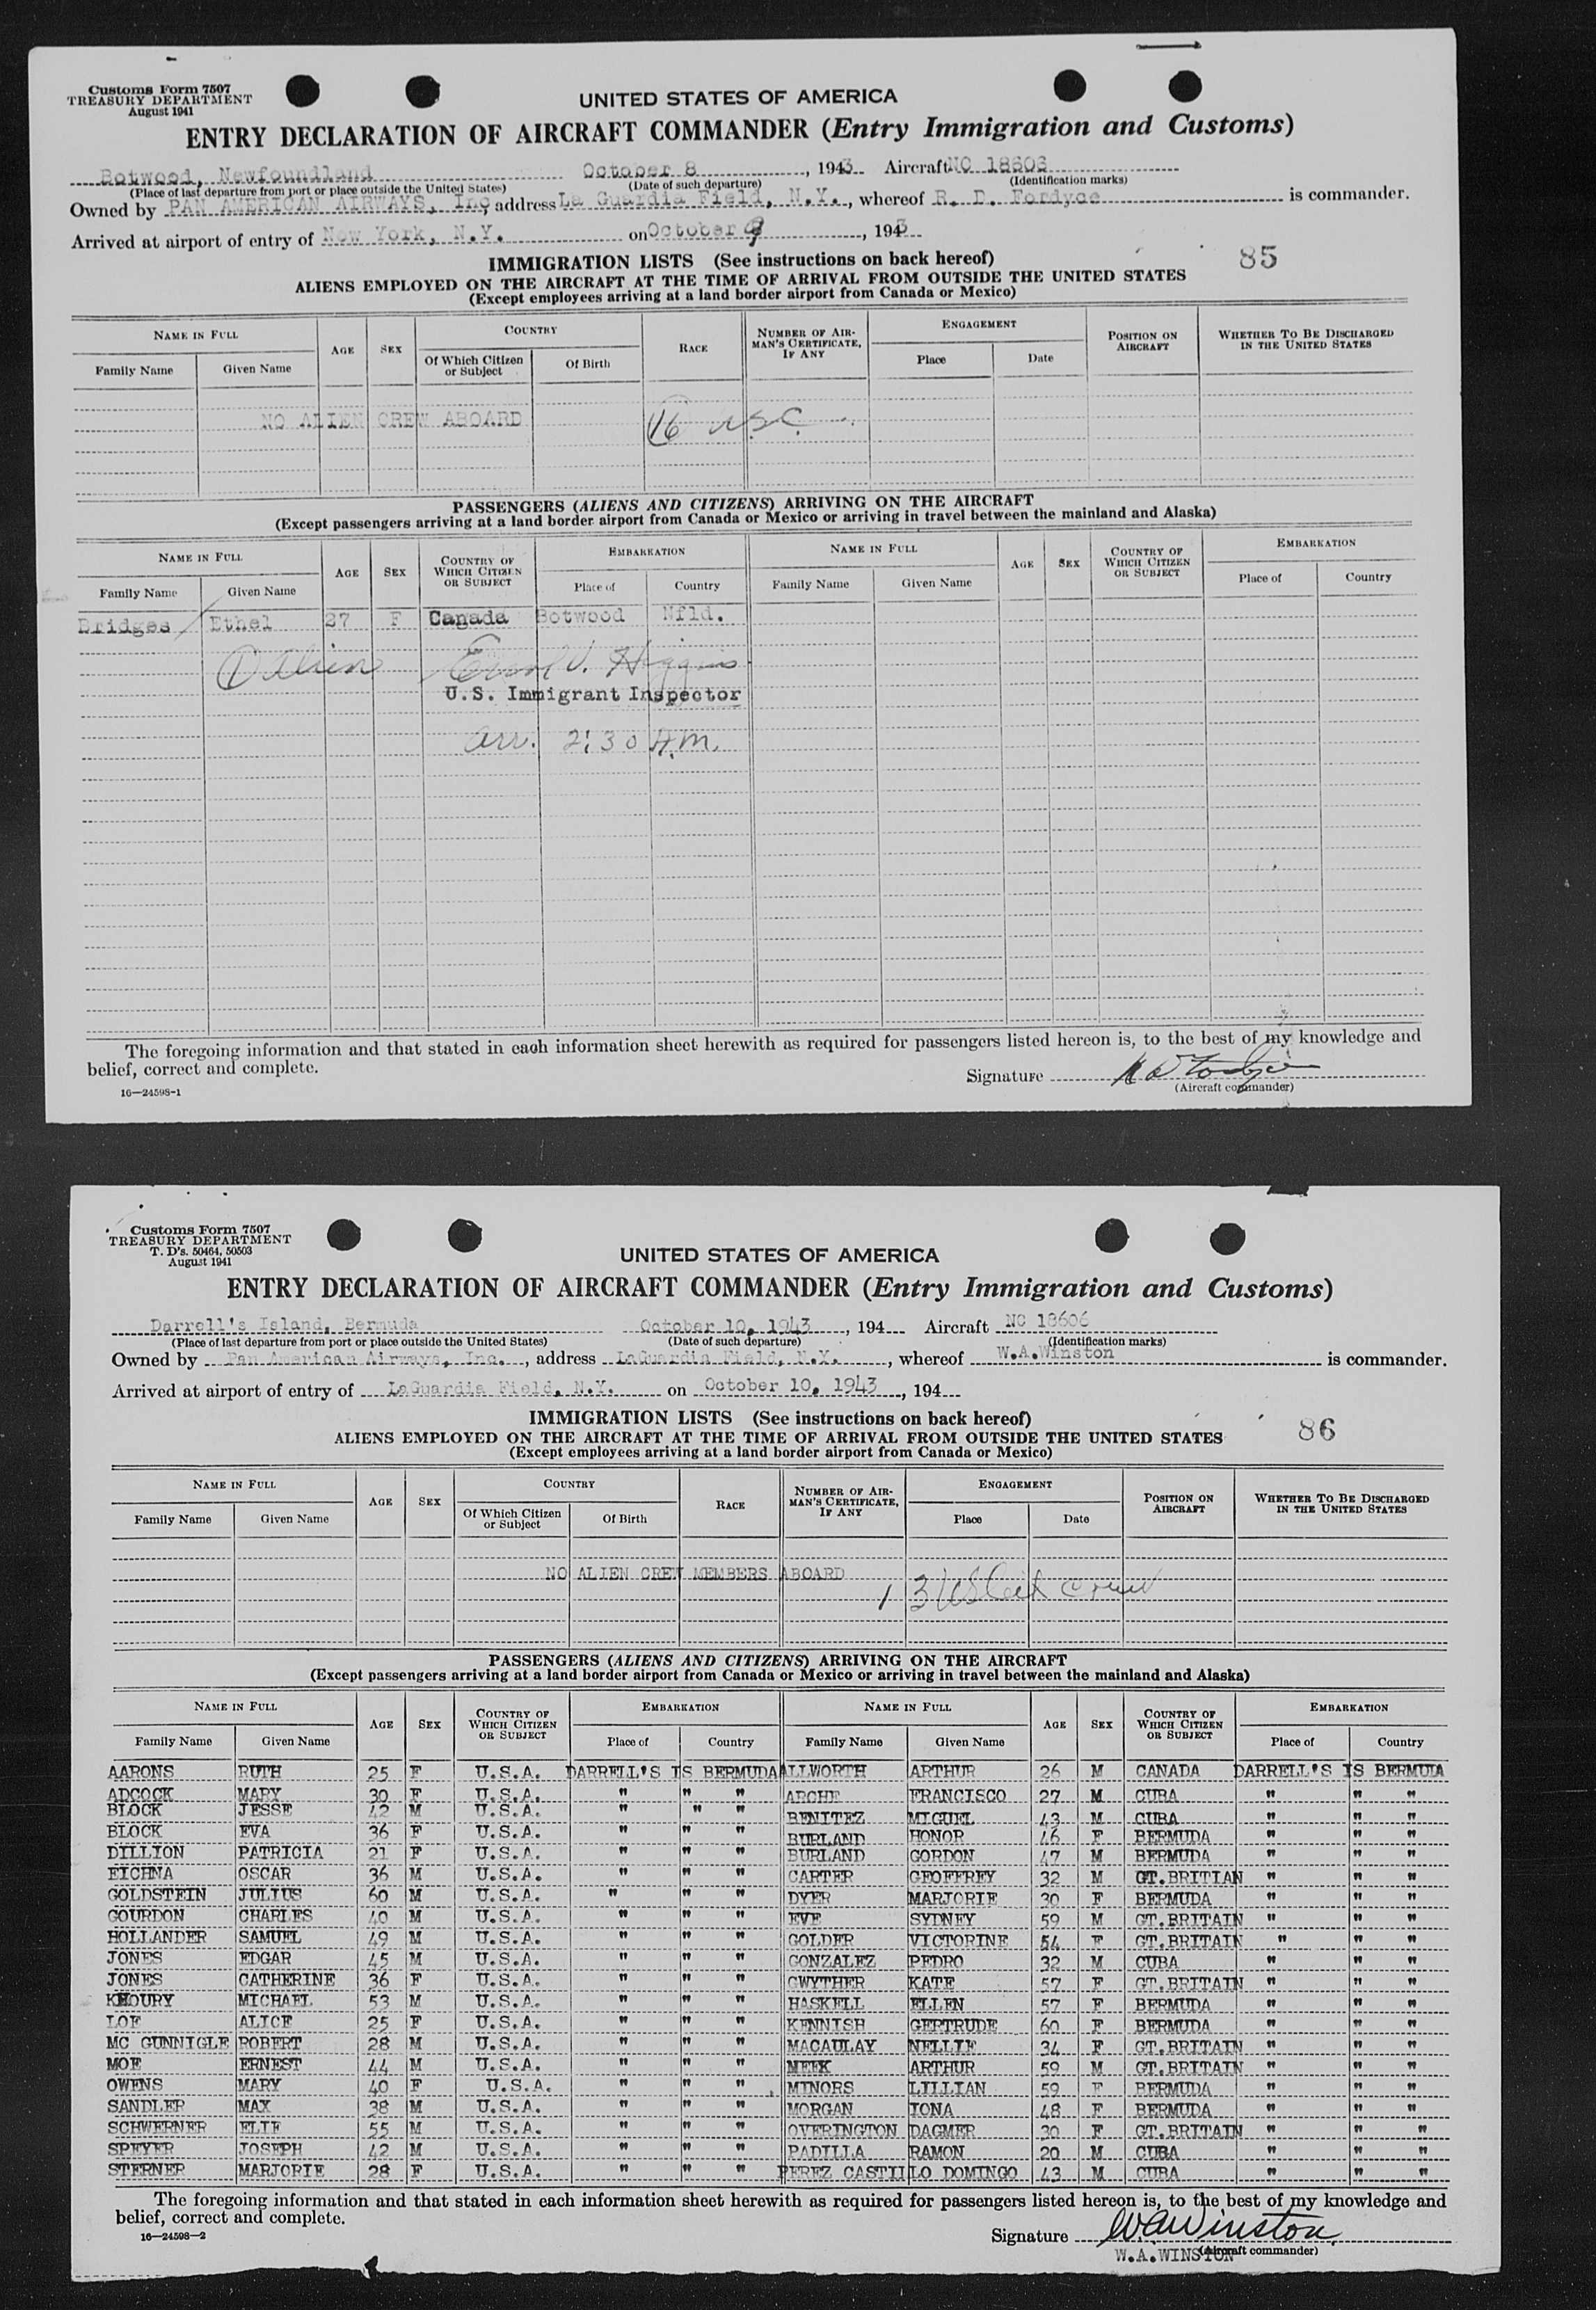 Customs Form 7507
TREASURY DEPARTMENT
August 1941
UNITED STATES OF AMERICA
ENTRY DECLARATION OF AIRCRAFT COMMANDER (Entry Immigration and Customs)
Botwood, Newfoundland October 8, 1943 Aircraft NC 18603
(Place of last departure from port or place outside the United States) (Date of such departure) (Identification marks)
Owned by PAN AMERICAN AIRWAYS, Inc, address La Guardia Field, N.Y., whereof R. D. Fordyce is commander.
Arrived at airport of entry of New York, N.Y. on October 9, 1943
85
IMMIGRATION LISTS (See instructions on back hereof)
ALIENS EMPLOYED ON THE AIRCRAFT AT THE TIME OF ARRIVAL FROM OUTSIDE THE UNITED STATES
(Except employees arriving at a land border airport from Canada or Mexico)
NAME IN FULL AGE SEX COUNTRY RACE NUMBER OF AIRMAN'S CERTIFICATE, IF ANY ENGAGEMENT POSITION ON AIRCRAFT WHETHER TO BE DISCHARGED IN THE UNITED STATES
Family Name Given Name Of Which Citizen or Subject Of Birth Place Date
NO ALIEN CREW ABOARD 16 USC
PASSENGERS (ALIENS AND CITIZENS) ARRIVING ON THE AIRCRAFT
(Except passengers arriving at a land border airport from Canada or Mexico or arriving in travel between the mainland and Alaska)
NAME IN FULL AGE SEX COUNTRY OF WHICH CITIZEN OR SUBJECT EMBARKATION NAME IN FULL AGE SEX COUNTRY OF WHICH CITIZEN OR SUBJECT EMBARKATION
Family Name Given Name Place of Country Family Name Given Name Place of Country
Bridges Ethel 27 F Canada Botwood Nfld.
1 Alien V. Higgins
U.S. Immigrant Inspector
arr. 2:30 A.M.
The foregoing information and that stated in each information sheet herewith as required for passengers listed hereon is, to the best of my knowledge and
belief, correct and complete.
Signature R D Fordyce
16—24598-1 (Aircraft commander)
Customs Form 7507
TREASURY DEPARTMENT
T. D's. 50464, 50503
August 1941
UNITED STATES OF AMERICA
ENTRY DECLARATION OF AIRCRAFT COMMANDER (Entry Immigration and Customs)
Darrell's Island, Bermuda October 10, 1943, 194 Aircraft NC 18606
(Place of last departure from port or place outside the United States) (Date of such departure) (Identification marks)
Owned by Pan American Airways, Inc., address LaGuardia Field, N.Y., whereof W.A.Winston is commander.
Arrived at airport of entry of LaGuardia Field, N.Y. on October 10, 1943, 194
86
IMMIGRATION LISTS (See instructions on back hereof)
ALIENS EMPLOYED ON THE AIRCRAFT AT THE TIME OF ARRIVAL FROM OUTSIDE THE UNITED STATES
(Except employees arriving at a land border airport from Canada or Mexico)
NAME IN FULL AGE SEX COUNTRY RACE NUMBER OF AIRMAN'S CERTIFICATE, IF ANY ENGAGEMENT POSITION ON AIRCRAFT WHETHER TO BE DISCHARGED IN THE UNITED STATES
Family Name Given Name Of Which Citizen or Subject Of Birth Place Date
NO ALIEN CREW MEMBERS ABOARD
13 US Cit crew
PASSENGERS (ALIENS AND CITIZENS) ARRIVING ON THE AIRCRAFT
(Except passengers arriving at a land border airport from Canada or Mexico or arriving in travel between the mainland and Alaska)
NAME IN FULL AGE SEX COUNTRY OF WHICH CITIZEN OR SUBJECT EMBARKATION NAME IN FULL AGE SEX COUNTRY OF WHICH CITIZEN OR SUBJECT EMBARKATION
Family Name Given Name Place of Country Family Name Given Name Place of Country
AARONS RUTH 25 F U.S.A. DARRELL'S IS BERMUDA ALLWORTH ARTHUR 26 M CANADA DARRELL'S IS BERMUDA
ADCOCK MARY 30 F U.S.A. " " " ARCHE FRANCISCO 27 M CUBA " " "
BLOCK JESSE 42 M U.S.A. " " " BENITEZ MIGUEL 43 M CUBA " " "
BLOCK EVA 36 F U.S.A. " " " BURLAND HONOR 46 F BERMUDA " " "
DILLION PATRICIA 21 F U.S.A. " " " BURLAND GORDON 47 M BERMUDA " " "
EICHNA OSCAR 36 M U.S.A. " " " CARTER GEOFFREY 32 M GT.BRITIAN " " "
GOLDSTEIN JULIUS 60 M U.S.A. " " " DYER MARJORIE 30 F BERMUDA " " "
GOURDON CHARLES 40 M U.S.A. " " " EVE SYDNEY 59 M GT.BRITAIN " " "
HOLLANDER SAMUEL 49 M U.S.A. " " " GOLDER VICTORINE 54 F GT.BRITAIN " " "
JONES EDGAR 45 M U.S.A. " " " GONZALEZ PEDRO 32 M CUBA " " "
JONES CATHERINE 36 F U.S.A. " " " GWYTHER KATE 57 F GT.BRITAIN " " "
KHOURY MICHAEL 53 M U.S.A. " " " HASKELL ELLEN 57 F BERMUDA " " "
LOF ALICE 25 F U.S.A. " " " KENNISH GERTRUDE 60 F BERMUDA " " "
MC GUNNIGLE ROBERT 28 M U.S.A. " " " MACAULAY NELLIE 34 F GT.BRITAIN " " "
MOE ERNEST 44 M U.S.A. " " " MEEK ARTHUR 59 M GT.BRITAIN " " "
OWENS MARY 40 F U.S.A. " " " MINORS LILLIAN 59 F BERMUDA " " "
SANDLER MAX 38 M U.S.A. " " " MORGAN IONA 48 F BERMUDA " " "
SCHWERNER ELIE 55 M U.S.A. " " " OVERINGTON DAGMER 30 F GT.BRITAIN " " "
SPEYER JOSEPH 42 M U.S.A. " " " PADILLA RAMON 20 M CUBA " " "
STERNER MARJORIE 28 F U.S.A. " " " PEREZ CASTILLO DOMINGO 43 M CUBA " " "
The foregoing information and that stated in each information sheet herewith as required for passengers listed hereon is, to the best of my knowledge and
belief, correct and complete.
Signature W.A.Winston
16—24598-2 (Aircraft commander)
W.A.WINSTON